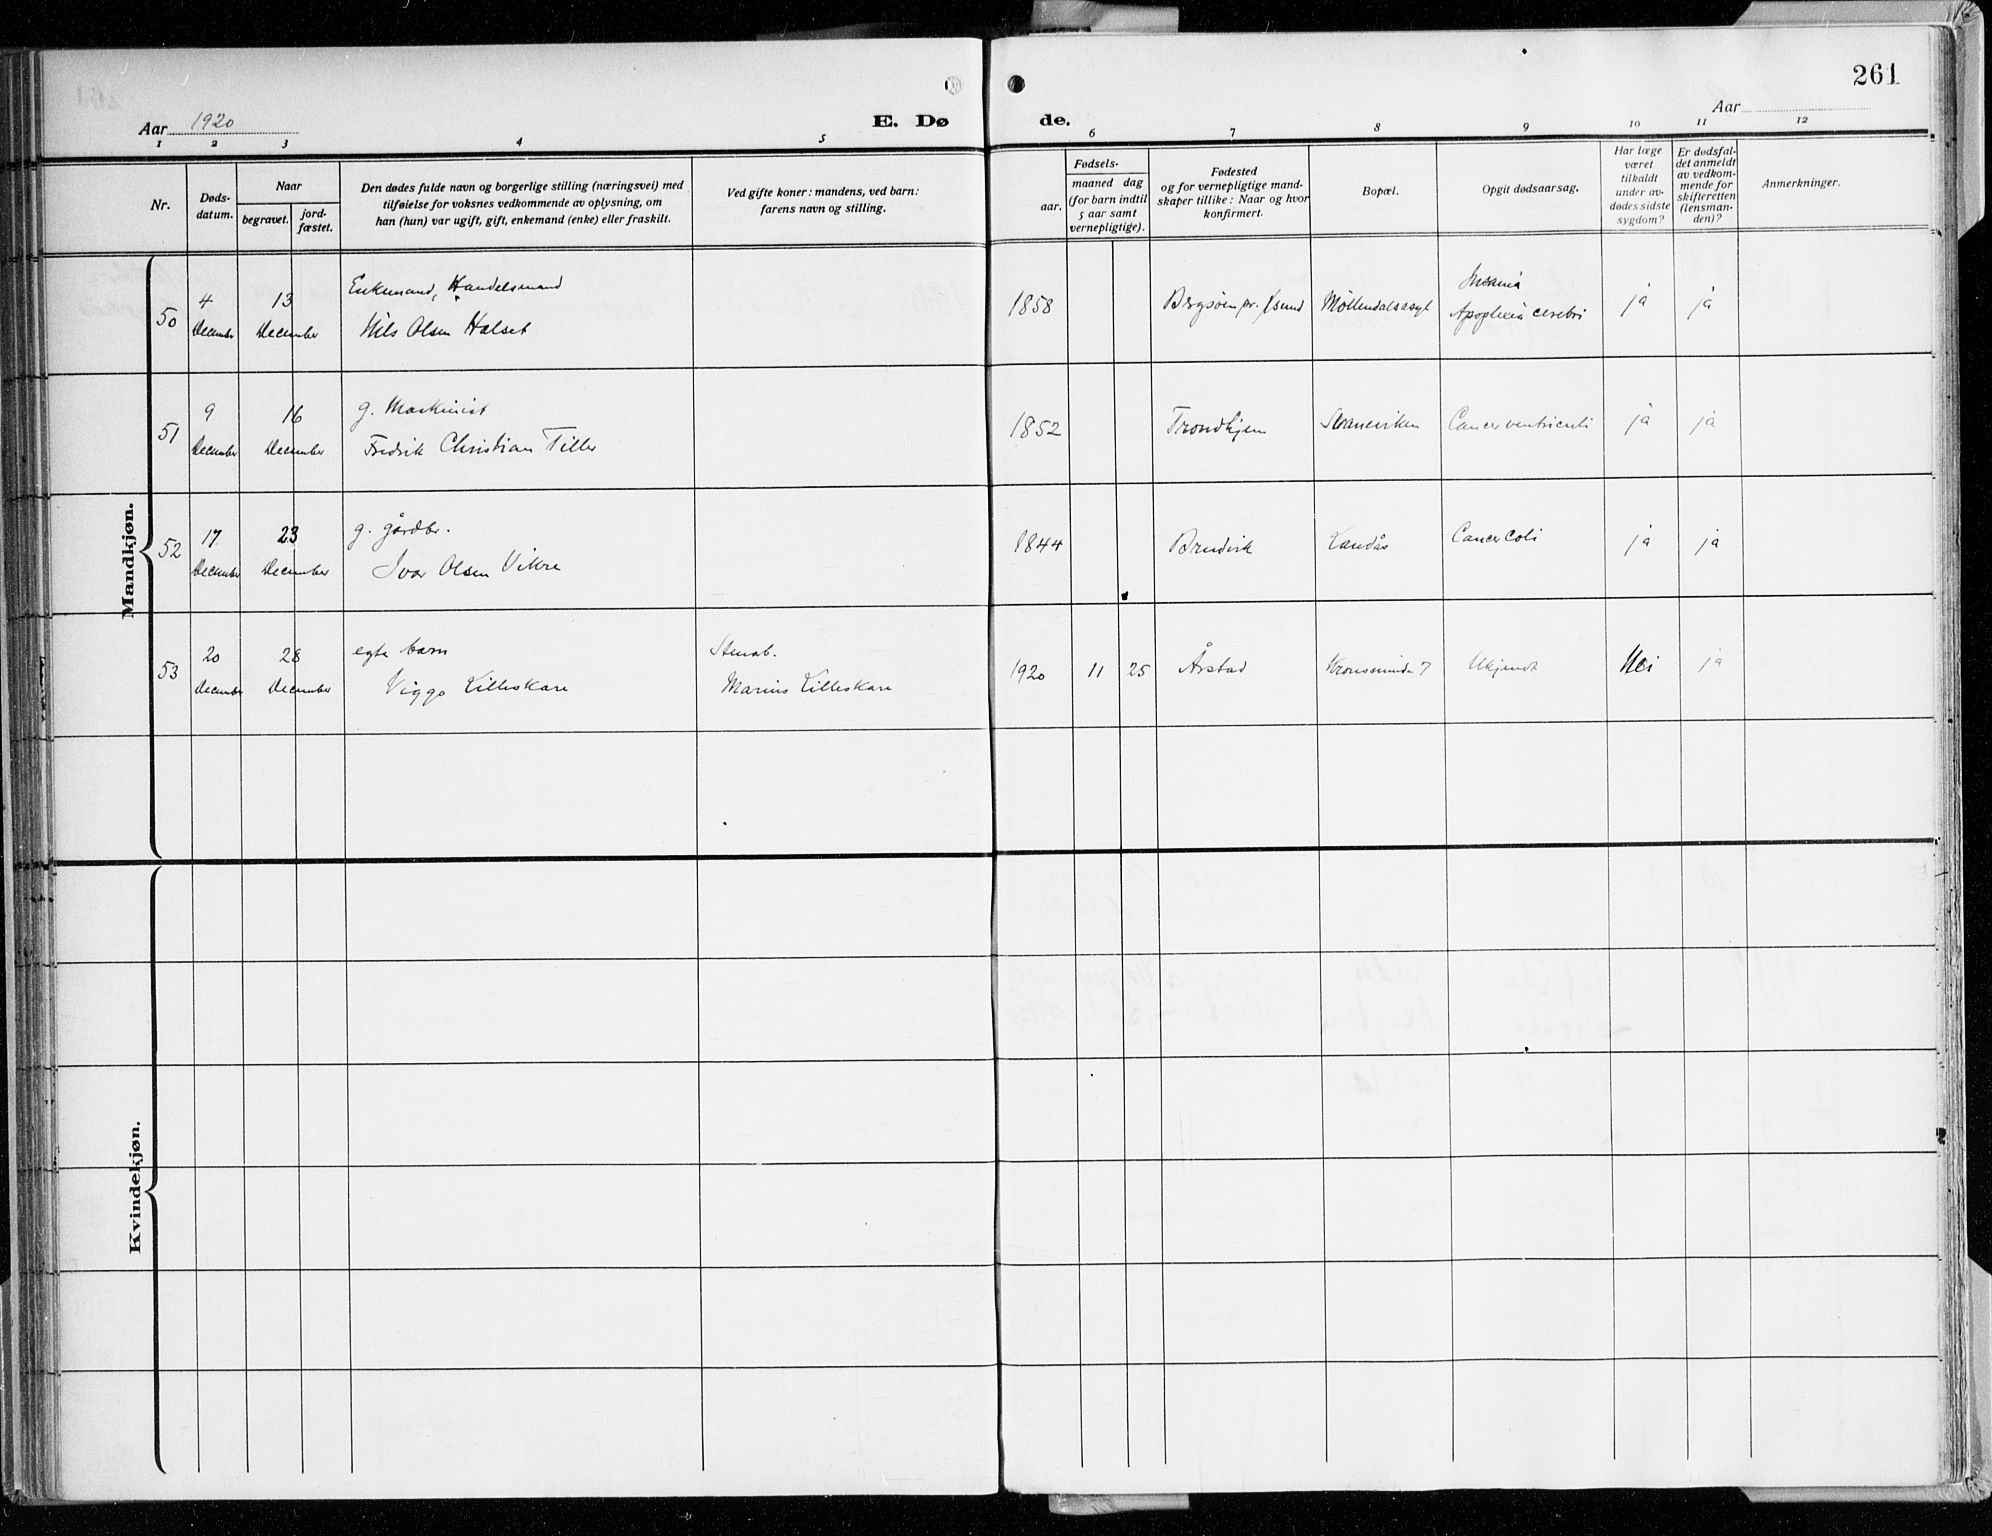 261
Aar 1920
E. Dø
de.
Aar
1 2 3 4 5 6 7 8 9 10 11 12
Nr.
Døds-
datum.
Naar
begravet.
jord-
fæstet.
Den dødes fulde navn og borgerlige stilling (næringsvei) med
tilføielse for voksnes vedkommende av oplysning, om
han (hun) var ugift, gift, enkemand (enke) eller fraskilt.
Ved gifte koner: mandens, ved barn:
farens navn og stilling.
Fødsels-
aar.
maaned dag
(for barn indtil
5 aar samt
vernepligtige).
Fødested
og for vernepligtige mand-
skaper tillike: Naar og hvor
konfirmert.
Bopæl.
Opgit dødsaarsag.
Har læge
været
tilkaldt
under av-
dødes sidste
sygdom?
Er dødsfal-
det anmeldt
av vedkom-
mende for
skifteretten
(lensman-
den)?
Anmerkninger.
Mandkjøn.
50 4 December 13 December
Enkemand, Handelsmand
Nils Olsen Halset
1858 Bergsøen pr. Xsund Møllendalsasyl
Insania
Apoplexia cerebri
ja ja
51 9 December 16 December
g. Maskinist
Fredrik Christian Tiller
1852 Trondhjem Svaneviken Cancer ventriculi ja ja
52 17 December 23 December
g. gårdbr.
Ivar Olsen Vikne
1844 Bruvik Landås Cancer Coli ja ja
53 20 December 28 December
egte barn
Viggo Lilleskare
Stenarb.
Marius Lilleskare
1920 11 25 Årstad Kronsminde 7 Ukjendt Nei ja
Kvindekjøn.